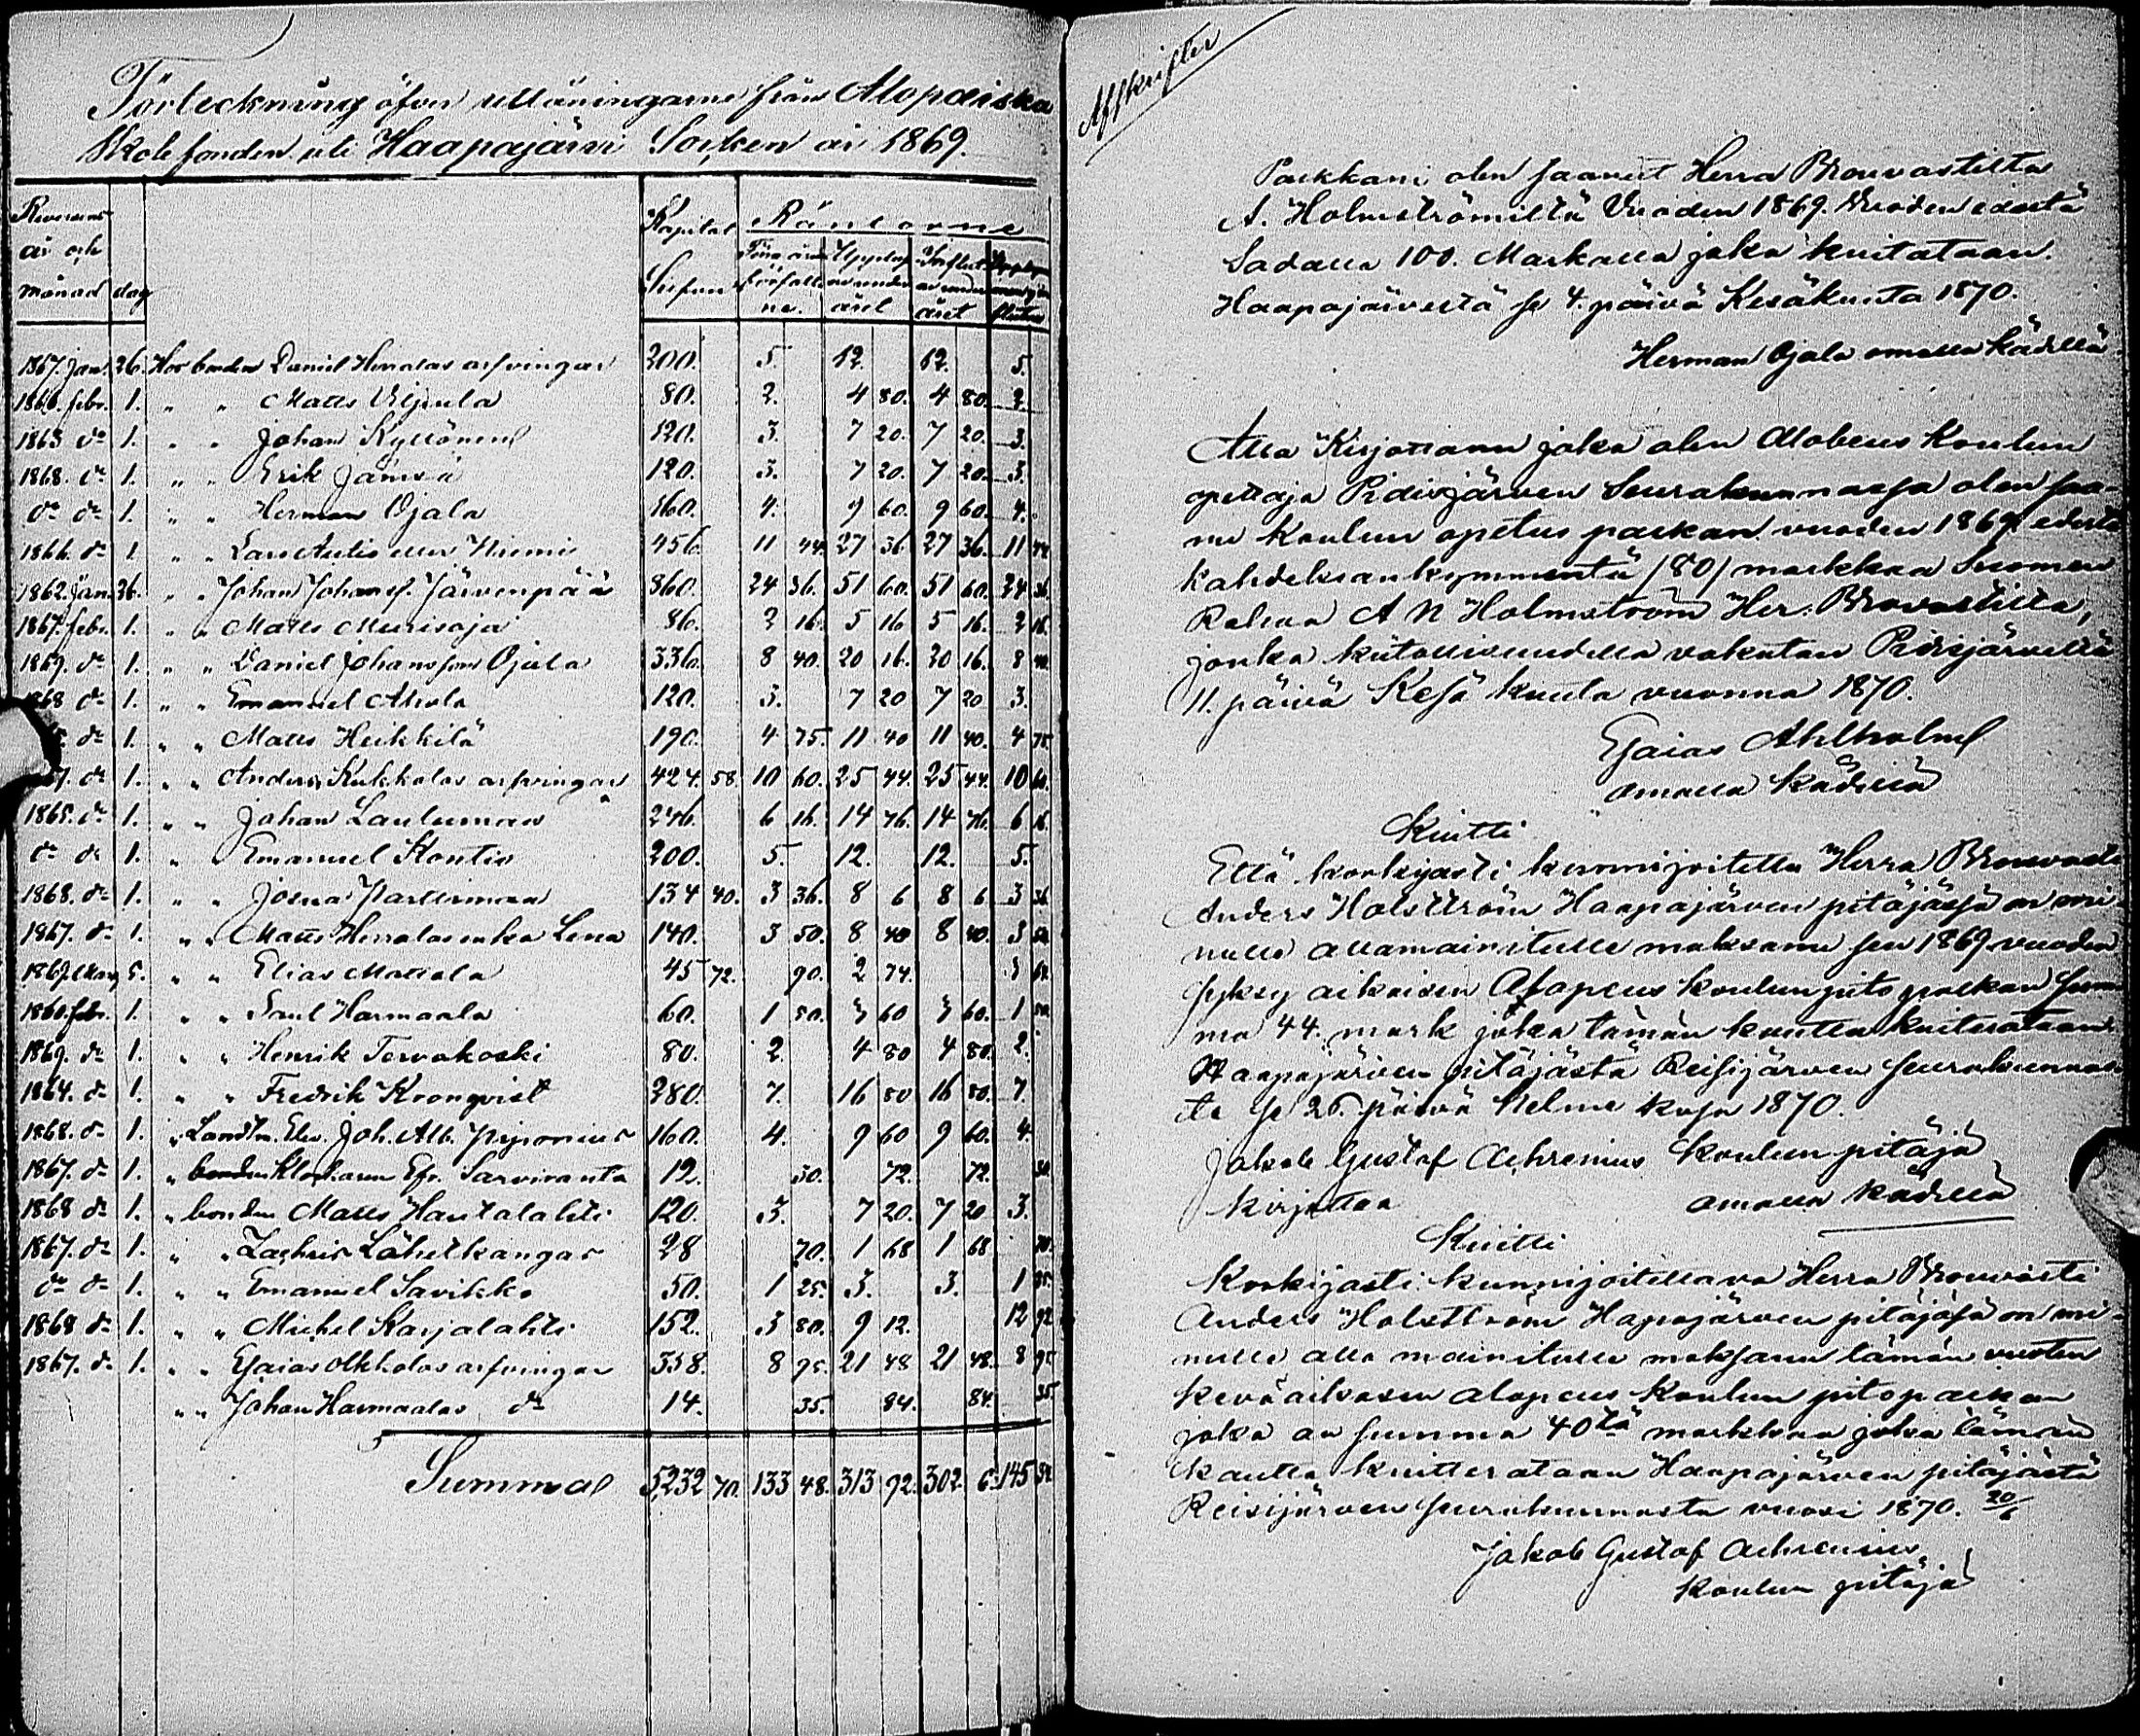 Förteckning öfver utlåningarne från Alopæiska
Skolefonden uti Haapajärvi Socken år 1869.
Reversens år och månad dag Kapital Siffror Räntorne
Från året förfallne. Upplupne under året Influtne under året
1867. Jan. 26. Hos bonden Daniel Herralas arfvingar 200. 5. 12. 12. 5.
1866. febr. 1. " " Matts Viljula 80. 2. 4 80. 4 80. 2.
1863 do 1. " " Johan Kyllönen 120. 3. 7 20. 7 20. 3.
1868. do 1. " " Erik Jämsä 120. 3. 7 20. 7 20. 3.
do do 1. " " Herman Ojala 160. 4. 9 60. 9 60. 4.
1866. do 1. " " Lars Autio eller Niemi 456. 11 44. 27 36. 27 36. 11 44.
1862. Jan. 26. " " Johan Johansf. Järvenpää 860. 24 36. 51 60. 51 60. 24 36.
1867. febr. 1. " " Matts Murisoja 86. 2 16. 5 16 5 16. 2 16.
1869. do 1. " " Daniel Johansson Ojala 336. 8 40. 20 16. 20 16. 8 40.
1868 do 1. " " Emanuel Ahola 120. 3. 7 20 7 20 3.
do 1. " " Matts Heikkilä 190. 4 75. 11 40 11 40. 4 75.
do 1. " " Anders Kukkolas arfvingar 424. 58. 10 60. 25 44. 25 44. 10 60.
1865. do 1. " " Johan Lauluman 246. 6 16. 14 76. 14 76. 6 16.
do do 1. " Emanuel Kontio 200. 5. 12. 12. 5.
1868. do 1. " " Josua Parturmaa 134 40. 3 36. 8 6 8 6. 3 36.
1867. do 1. " " Matts Herralas enka Lena 140. 3 50. 8 40 8 40. 3 50.
1869. Mars 5. " " Elias Mattala 45 72. 90. 2 74. 3 64.
1860. febr. 1. " " Paul Harmaala 60. 1 50. 3 60 3 60. 1 50.
1869. do 1. " " Henrik Tervakoski 80. 2. 4 80 4 80. 2.
1864. do 1. " " Fredrik Kronqvist 280. 7. 16 80 16 80. 7.
1868. do 1. " Landtm. Elev. Joh. Alb. Piponius 160. 4. 9 60 9 60. 4.
1867. do 1. " Klockaren Efr. Sarviranta 12. 30. 72. 72. 30.
1868 do 1. " bonden Matts Hautalahti 120. 3. 7 20. 7 20 3.
1867. do 1. " " Zachris Lähetkangas 28 70. 1 68 1 68 70.
do do 1. " " Emanuel Savikko 50. 1 25. 3. 3. 1 25.
1868 do 1. " " Michel Karjalahti 152. 3 80. 9 12. 12 92
1867. do 1. " " Esaias Olkkolas arfvingar 358. 8 95. 21 48 21 48. 8 95.
" " Johan Harmaalas do 14. 35. 84. 84. 35
Summa 5,232 70. 133 48. 313 92. 302. 6. 145 34.
Afskrifter
Palkkani olen saanut Herra Prouvastilta
A. Holmströmiltä Vuoden 1869. Vuoden edestä
Sadalla 100. Markalla joka kuitataan.
Haapajärvestä se 4. päivä Kesäkuuta 1870.
Herman Ojala omalla kädellä.
Alla Kirjottanu joka olen Alobeus Koulun
opettaja Pidisjärven Seurakunnassa olen saa-
nu koulun opetus palkan vuoden 1869 edestä
kahdeksankymmentä /80/ markkaa Suomen
Rahaa A N Holmström Her: Provastilta,
jonka kiitollisuudella vakutan Pidisjärvellä
11. päivä Kesä kuuta vuonna 1870.
Esaias Ahlholm
omalla kädellä
Kuitti
Että korkijasti kunnijoitettu Herra Prouvasti
Anders Holsttröm Haapajärven pitäjäsä on mi-
nulle allamainitulle maksanu sen 1869 vuoden
syksy aikaisen Alopeus koulunpito palkan sum-
ma 44. mark joka tämän kautta kuiterataan
Haapajärven pitäjästä Reisijärven seurakunnas-
ta se 26. päivä helme kusa 1870.
Jakob Gustaf Achrenius koulun pitäjä
kirjottaa omalla kädellä
Kuitti
Korkijasti kunnijoitettava Herra Prouvasti
Anders Holsttröm Hapajärven pitäjäsä on mi-
nulle alla mainitulle maksanu tämän vuoten
keväaikasen alopeus koulun pitopalkan
joka on summa 40tä markkaa joka tämän
kautta kuitterataan Haapajärven pitäjästä
Reisijärven seurakunnasta vuosi 1870. 20/6
Jakob Gustaf Achrenius
koulun pitäjä